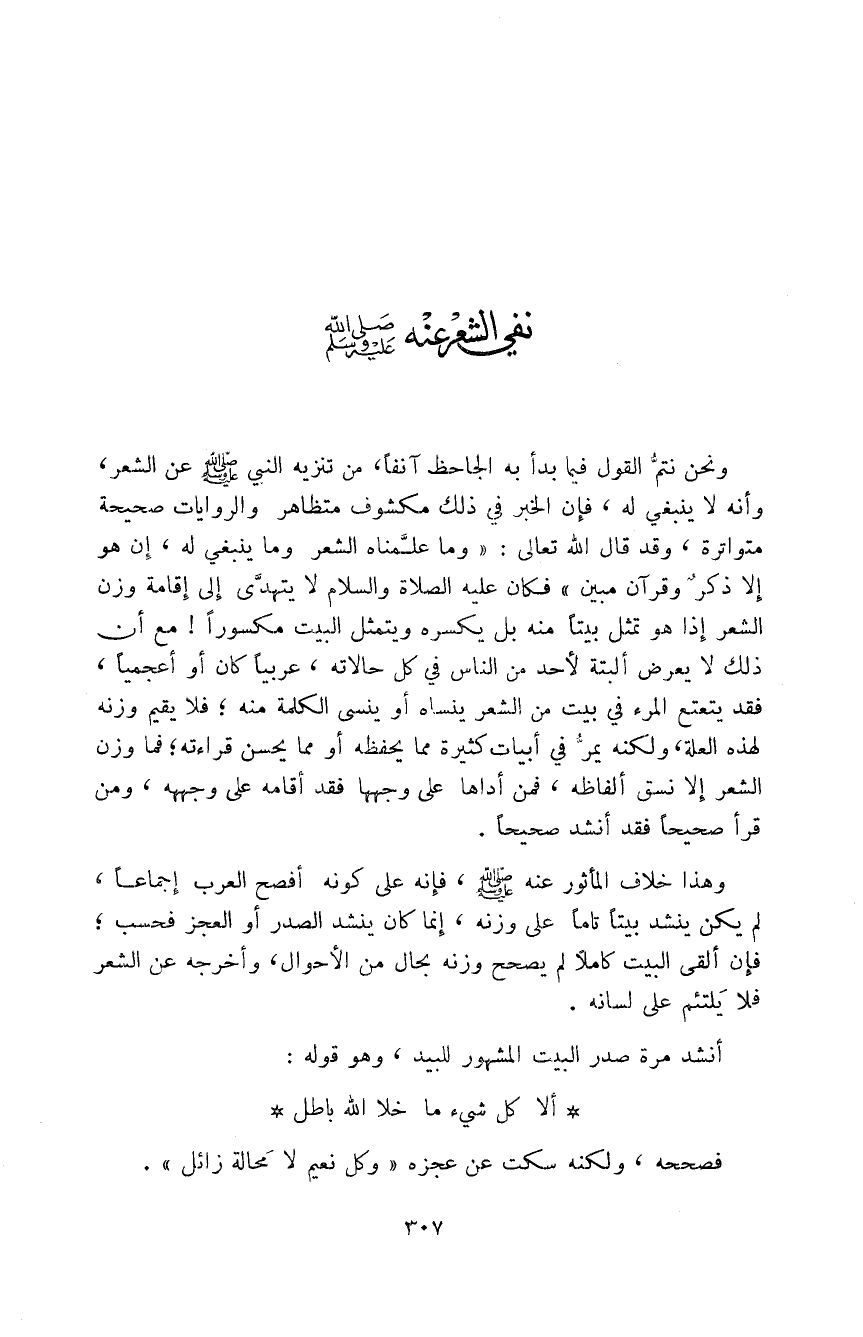 نفي الشعْر عنْه صَلى الله عَليْه وَسَلم
ونحن نتمُّ القول فيما بدأ به الجاحظ آنفاً، من تنزيه النبي ﷺ عن الشعر،
وأنه لا ينبغي له ، فإن الخبر في ذلك مكشوف متظاهر والروايات صحيحة
متواترة ، وقد قال الله تعالى : « وما علَّمناه الشعر وما ينبغي له ، إن هو
إلا ذكرٌ وقرآن مبين » فكان عليه الصلاة والسلام لا يتهدَّى إلى إقامة وزن
الشعر إذا هو تمثل بيتاً منه بل يكسره ويتمثل البيت مكسوراً ! مع أن
ذلك لا يعرض ألبتة لأحد من الناس في كل حالاته ، عربياً كان أو أعجمياً ،
فقد يتعتع المرء في بيت من الشعر ينساه أو ينسى الكلمة منه ؛ فلا يقيم وزنه
لهذه العلة، ولكنه يمرُّ في أبيات كثيرة مما يحفظه أو مما يحسن قراءته؛ فما وزن
الشعر إلا نسق ألفاظه ، فمن أداها على وجهها فقد أقامه على وجهه ، ومن
قرأ صحيحاً فقد أنشد صحيحاً .
وهذا خلاف المأثور عنه ﷺ ، فإنه على كونه أفصح العرب إجماعاً ،
لم يكن ينشد بيتاً تاماً على وزنه ، إنما كان ينشد الصدر أو العجز فحسب ؛
فإن ألقى البيت كاملاً لم يصحح وزنه بحال من الأحوال، وأخرجه عن الشعر
فلا يَلتئم على لسانه .
أنشد مرة صدر البيت المشهور للبيد ، وهو قوله :
* ألا كل شيء ما خلا الله باطل *
فصححه ، ولكنه سكت عن عجزه « وكل نعيم لا مَحالة زائل » .
٣٠٧